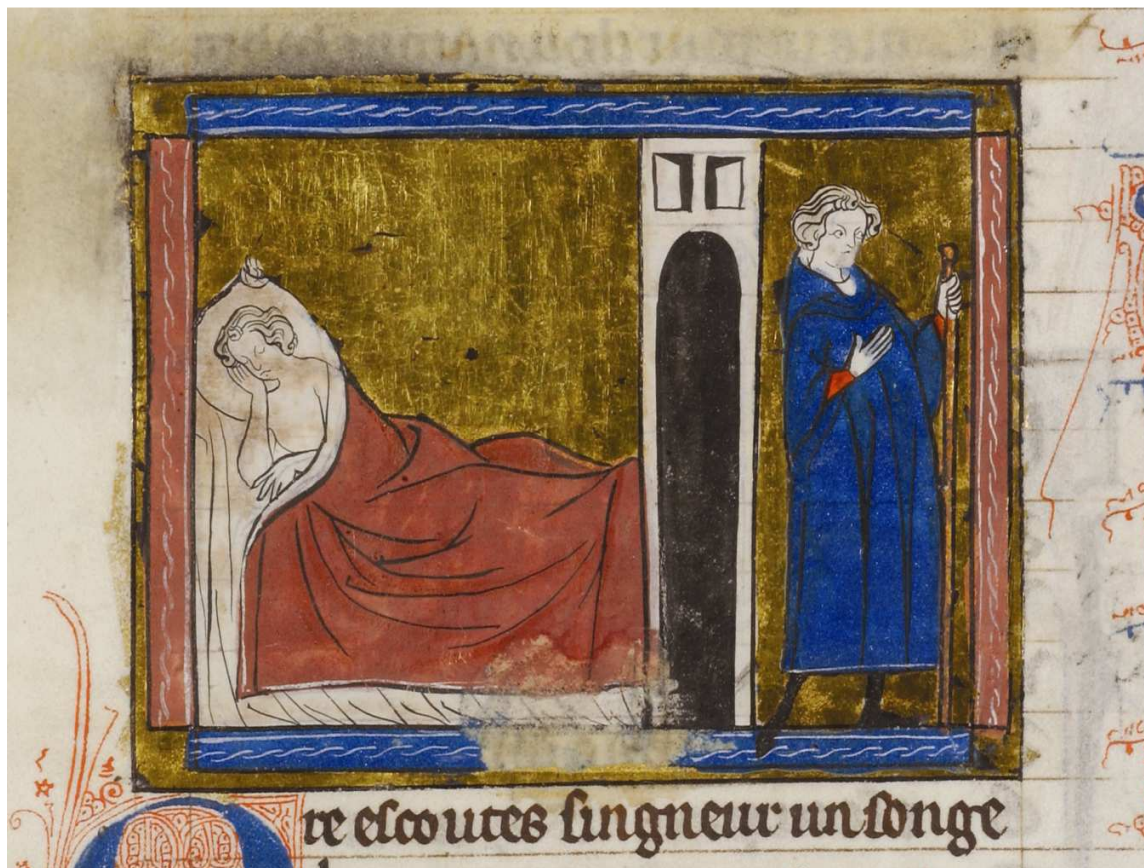 Ore escoutes singneur un songe